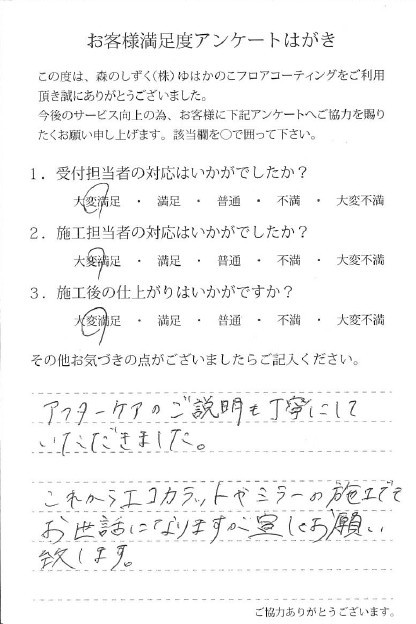 お客様満足度アンケートはがき
この度は、森のしずく(株)ゆはかのこフロアコーティングをご利用
頂き誠にありがとうございました。
今後のサービス向上の為、お客様に下記アンケートへご協力を賜り
たくお願い申し上げます。該当欄を○で囲って下さい。
1．受付担当者の対応はいかがでしたか？
大変満足 ・ 満足 ・ 普通 ・ 不満 ・ 大変不満
2．施工担当者の対応はいかがでしたか？
大変満足 ・ 満足 ・ 普通 ・ 不満 ・ 大変不満
3．施工後の仕上がりはいかがですか？
大変満足 ・ 満足 ・ 普通 ・ 不満 ・ 大変不満
その他お気づきの点がございましたらご記入ください。
アフターケアのご説明も丁寧にして
いただきました。
これからエコカラットやミラーの施工でも
お世話になりますが宜しくお願い
致します。
ご協力ありがとうございます。